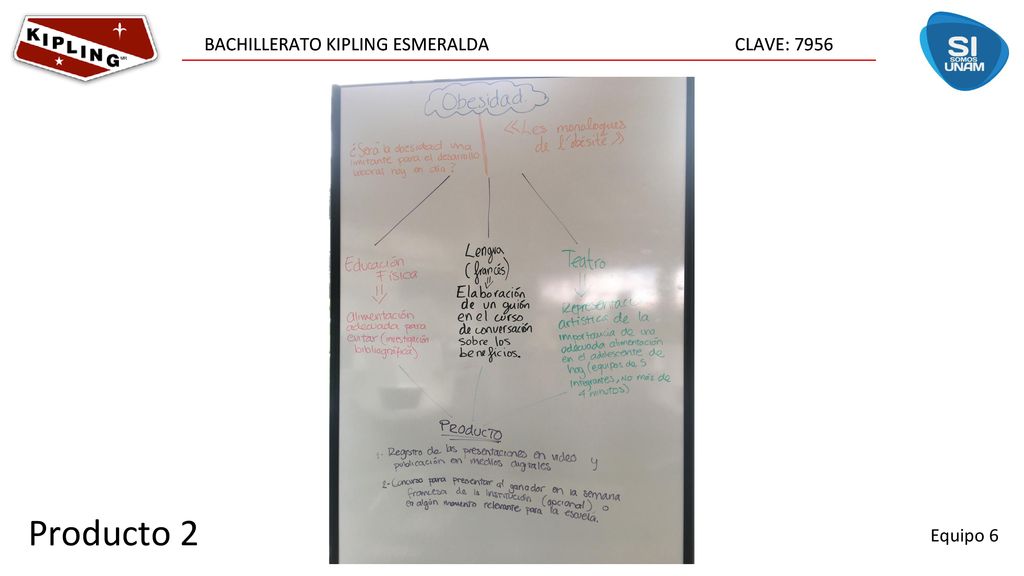 KIPLING
BACHILLERATO KIPLING ESMERALDA
CLAVE: 7956
SI
SOMOS
UNAM
Obesidad
¿Será la obesidad una
limitante para el desarrollo
laboral hoy en día?
«Les monologues
de l'obésité»
Educación
Física
Alimentación
adecuada para
evitar (investigación
bibliográfica)
Lengua
(francés)
Elaboración
de un guión
en el curso
de conversación
sobre los
beneficios.
Teatro
Representaci
artística de la
importancia de una
adecuada alimentación
en el adolescente de
hoy (equipos de 5
integrantes, no más de
4 minutos)
PRODUCTO
1.- Registro de las presentaciones en video y
publicación en medios digitales
2.- Concurso para presentar al ganador en la semana
francesa de la Institución (opcional) o
en algún momento relevante para la escuela.
Producto 2
Equipo 6